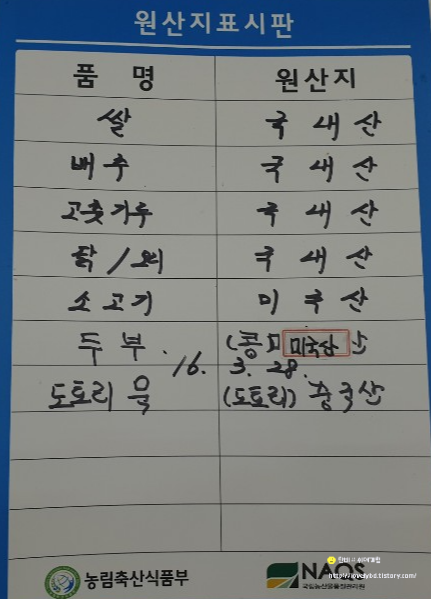 원산지표시판
품 명 원산지
쌀 국 내 산
배추 국 내 산
고춧가루 국 내 산
닭/오리 국 내 산
소고기 미 국 산
두부 (콩) 미국산 산
16. 3. 28.
도토리묵 (도토리) 중국산
농림축산식품부 NAQS
국립농산물품질관리원
http://lovelybd.tistory.com/